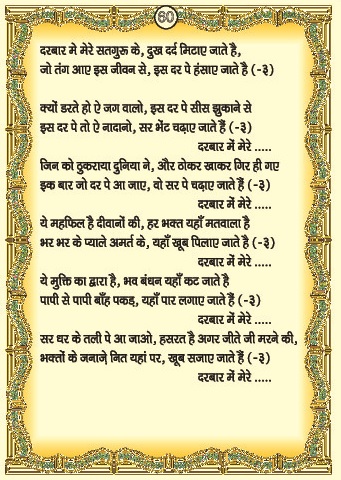 60
दरबार में मेरे सतगुरू के, दुख दर्द मिटाए जाते है,
जो तंग आए इस जीवन से, इस दर पे हंसाए जाते है (-३)
क्यों डरते हो ऐ जग वालो, इस दर पे सीस झुकाने से
इस दर पे तो ऐ नादानो, सर भेंट चढ़ाए जाते हैं (-३)
दरबार में मेरे .....
जिन को ठुकराया दुनिया ने, और ठोकर खाकर गिर ही गए
इक बार जो दर पे आ जाए, वो सर पे चढ़ाए जाते हैं (-३)
दरबार में मेरे .....
ये महफिल है दीवानों की, हर भक्त यहाँ मतवाला है
भर भर के प्याले अमर्त के, यहाँ खूब पिलाए जाते है (-३)
दरबार में मेरे .....
ये मुक्ति का द्वारा है, भव बंधन यहाँ कट जाते है
पापी से पापी बाँह पकड़, यहाँ पार लगाए जाते हैं (-३)
दरबार में मेरे .....
सर धर के तली पे आ जाओ, हसरत है अगर जीते जी मरने की,
भक्तों के जनाजे़ नित यहां पर, खूब सजाए जाते हैं (-३)
दरबार में मेरे .....